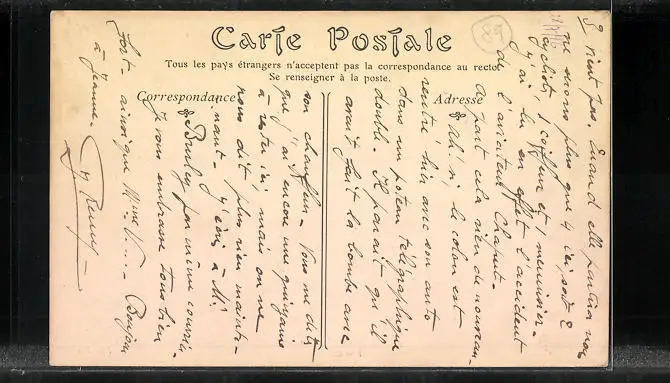 Carte Postale
89
Tous les pays étrangers n'acceptent pas la correspondance au recto
Se renseigner à la poste.
Correspondance
Adresse
vient pas. Quand elle partira nous
ne serons plus que 4 ici, soit 2
cyclistes, 1 coiffeur et 1 menuisier.
J'ai lu en effet l'accident
de l'aviateur Chaput.
A part cela rien de nouveau.
Ah! si, le colon est
rentré hier avec son auto
dans un poteau télégraphique
double. Il parait qu'il
avait fait la bombe avec
son chauffeur - Vous me dites
que j'ai encore une quinzaine
à ici, mais on ne
nous dit plus rien mainte-
nant - J'écris à Mr
par même courrier.
Je vous embrasse tous bien
fort - ainsi que Mme V.... - Bonjour
à Jeanne.